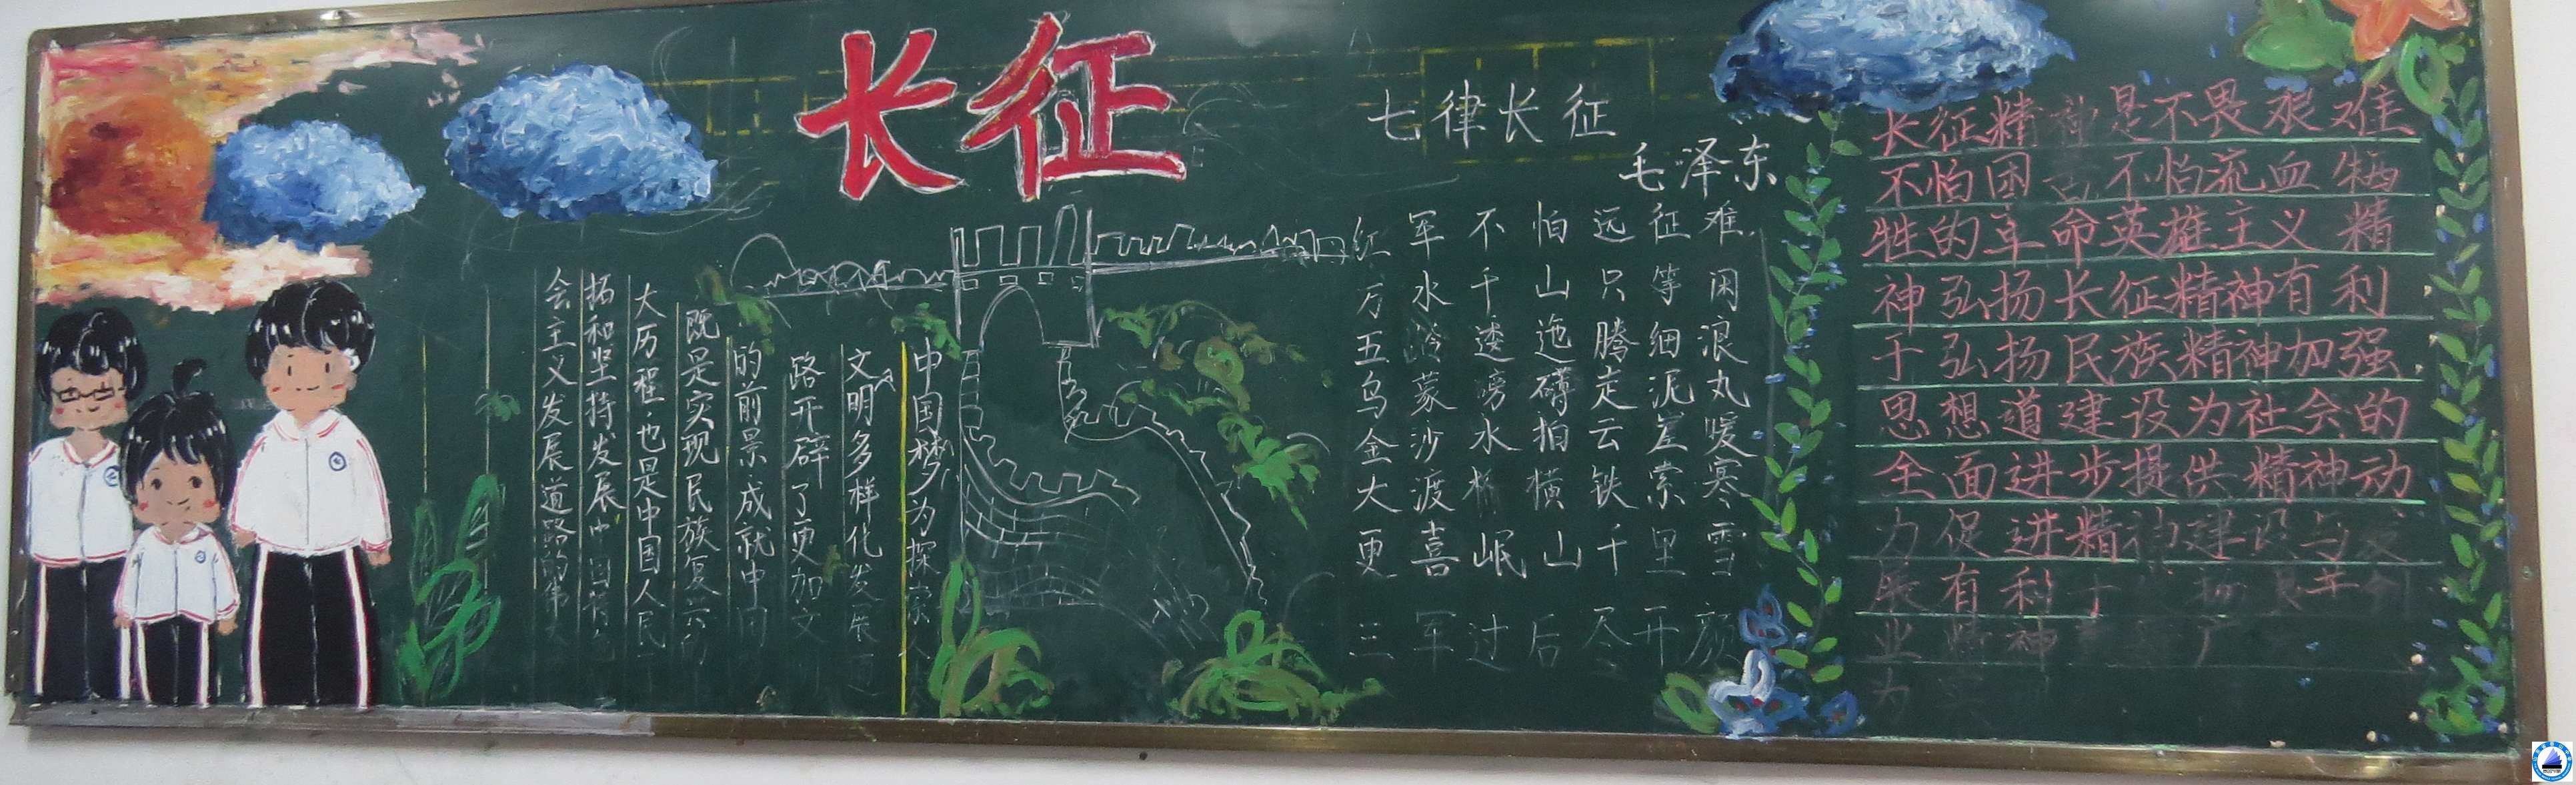 长征
七律长征
毛泽东
红军不怕远征难
万水千山只等闲
五岭逶迤腾细浪
乌蒙磅礴走泥丸
金沙水拍云崖暖
大渡桥横铁索寒
更喜岷山千里雪
三军过后尽开颜
中国梦为探索人
文明多样化发展道
路开辟了更加文
的前景成就中国
既是实现民族复兴的
大历程,也是中国人民
拓和坚持发展中国特色
会主义发展道路的
长征精神是不畏艰难
不怕困苦不怕流血牺
牲的革命英雄主义精
神弘扬长征精神有利
于弘扬民族精神加强
思想道建设为社会的
全面进步提供精神动
力促进精神建设与发
展有利于
业精神
为